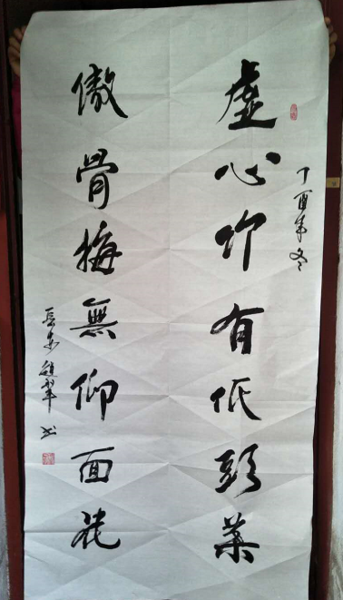 丁酉年冬
虚心竹有低頭葉
傲骨梅無仰面花
书